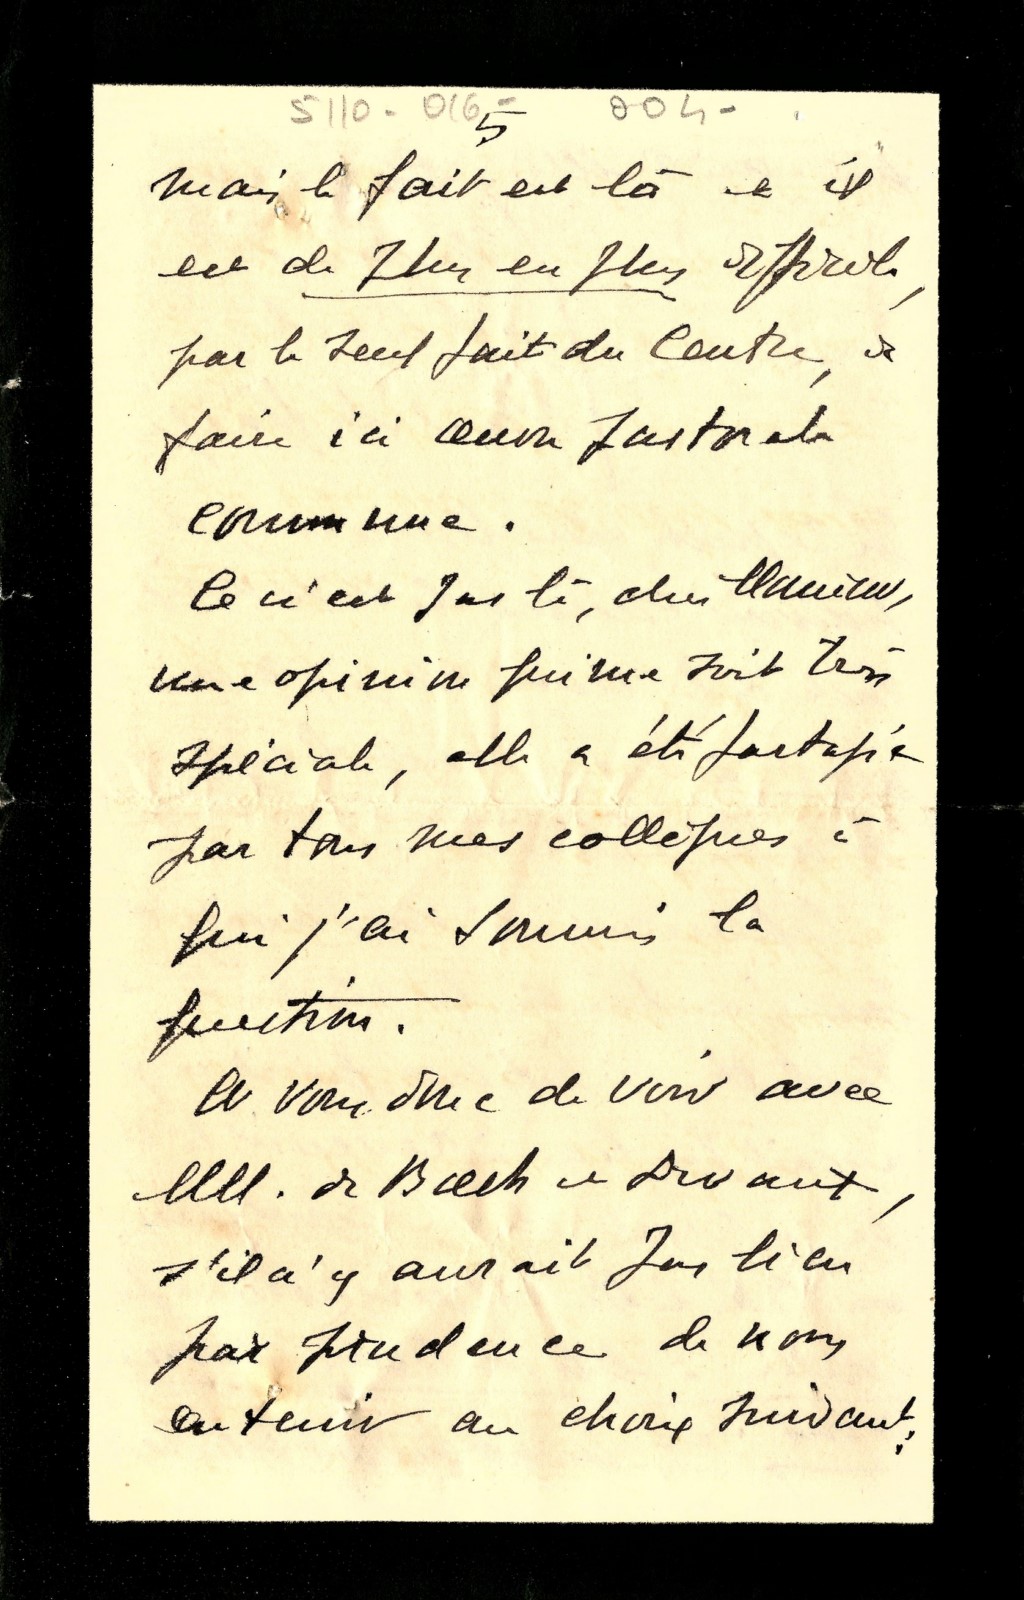 5110-016- 004-
5
mais le fait est là et il
est de plus en plus difficile,
par le seul fait du Centre, de
faire ici œuvre pastorale
commune.
Ce n'est pas là, cher Monsieur,
une opinion qui me soit très
spéciale, elle a été partagée
par tous mes collègues à
qui j'ai soumis la
question.
A vous donc de voir avec
MM. de Bach et
s'il n'y aurait pas lieu
par prudence de nous
en tenir au choix suivant: